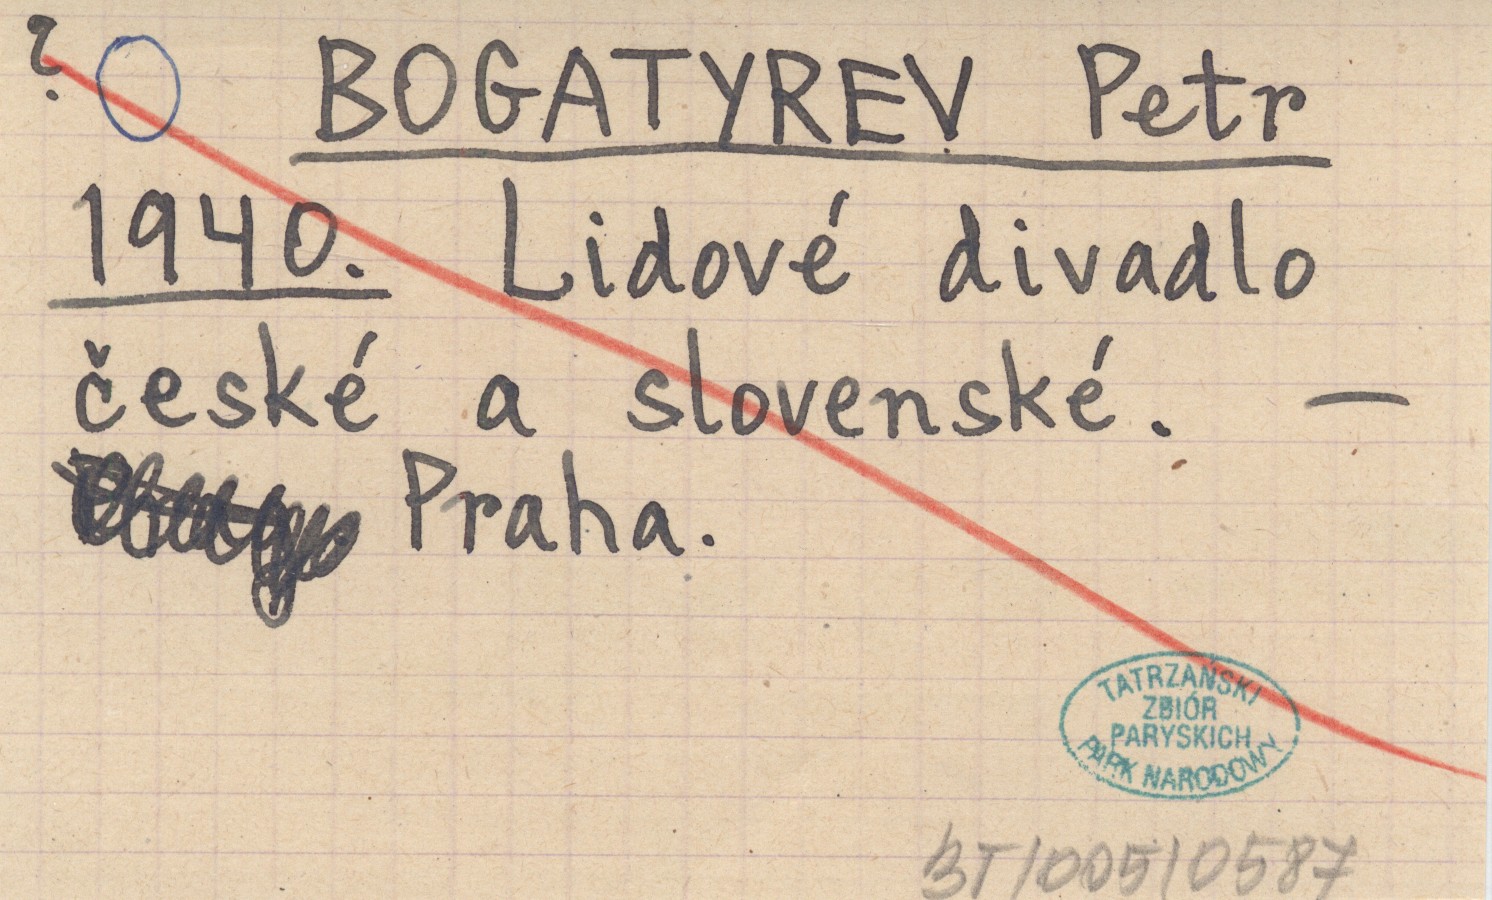 ?
BOGATYREV Petr
1940. Lidové divadlo
české a slovenské. —
Praha.
TATRZAŃSKI
ZBIÓR
PARYSKICH
PARK NARODOWY
BT/005/0587